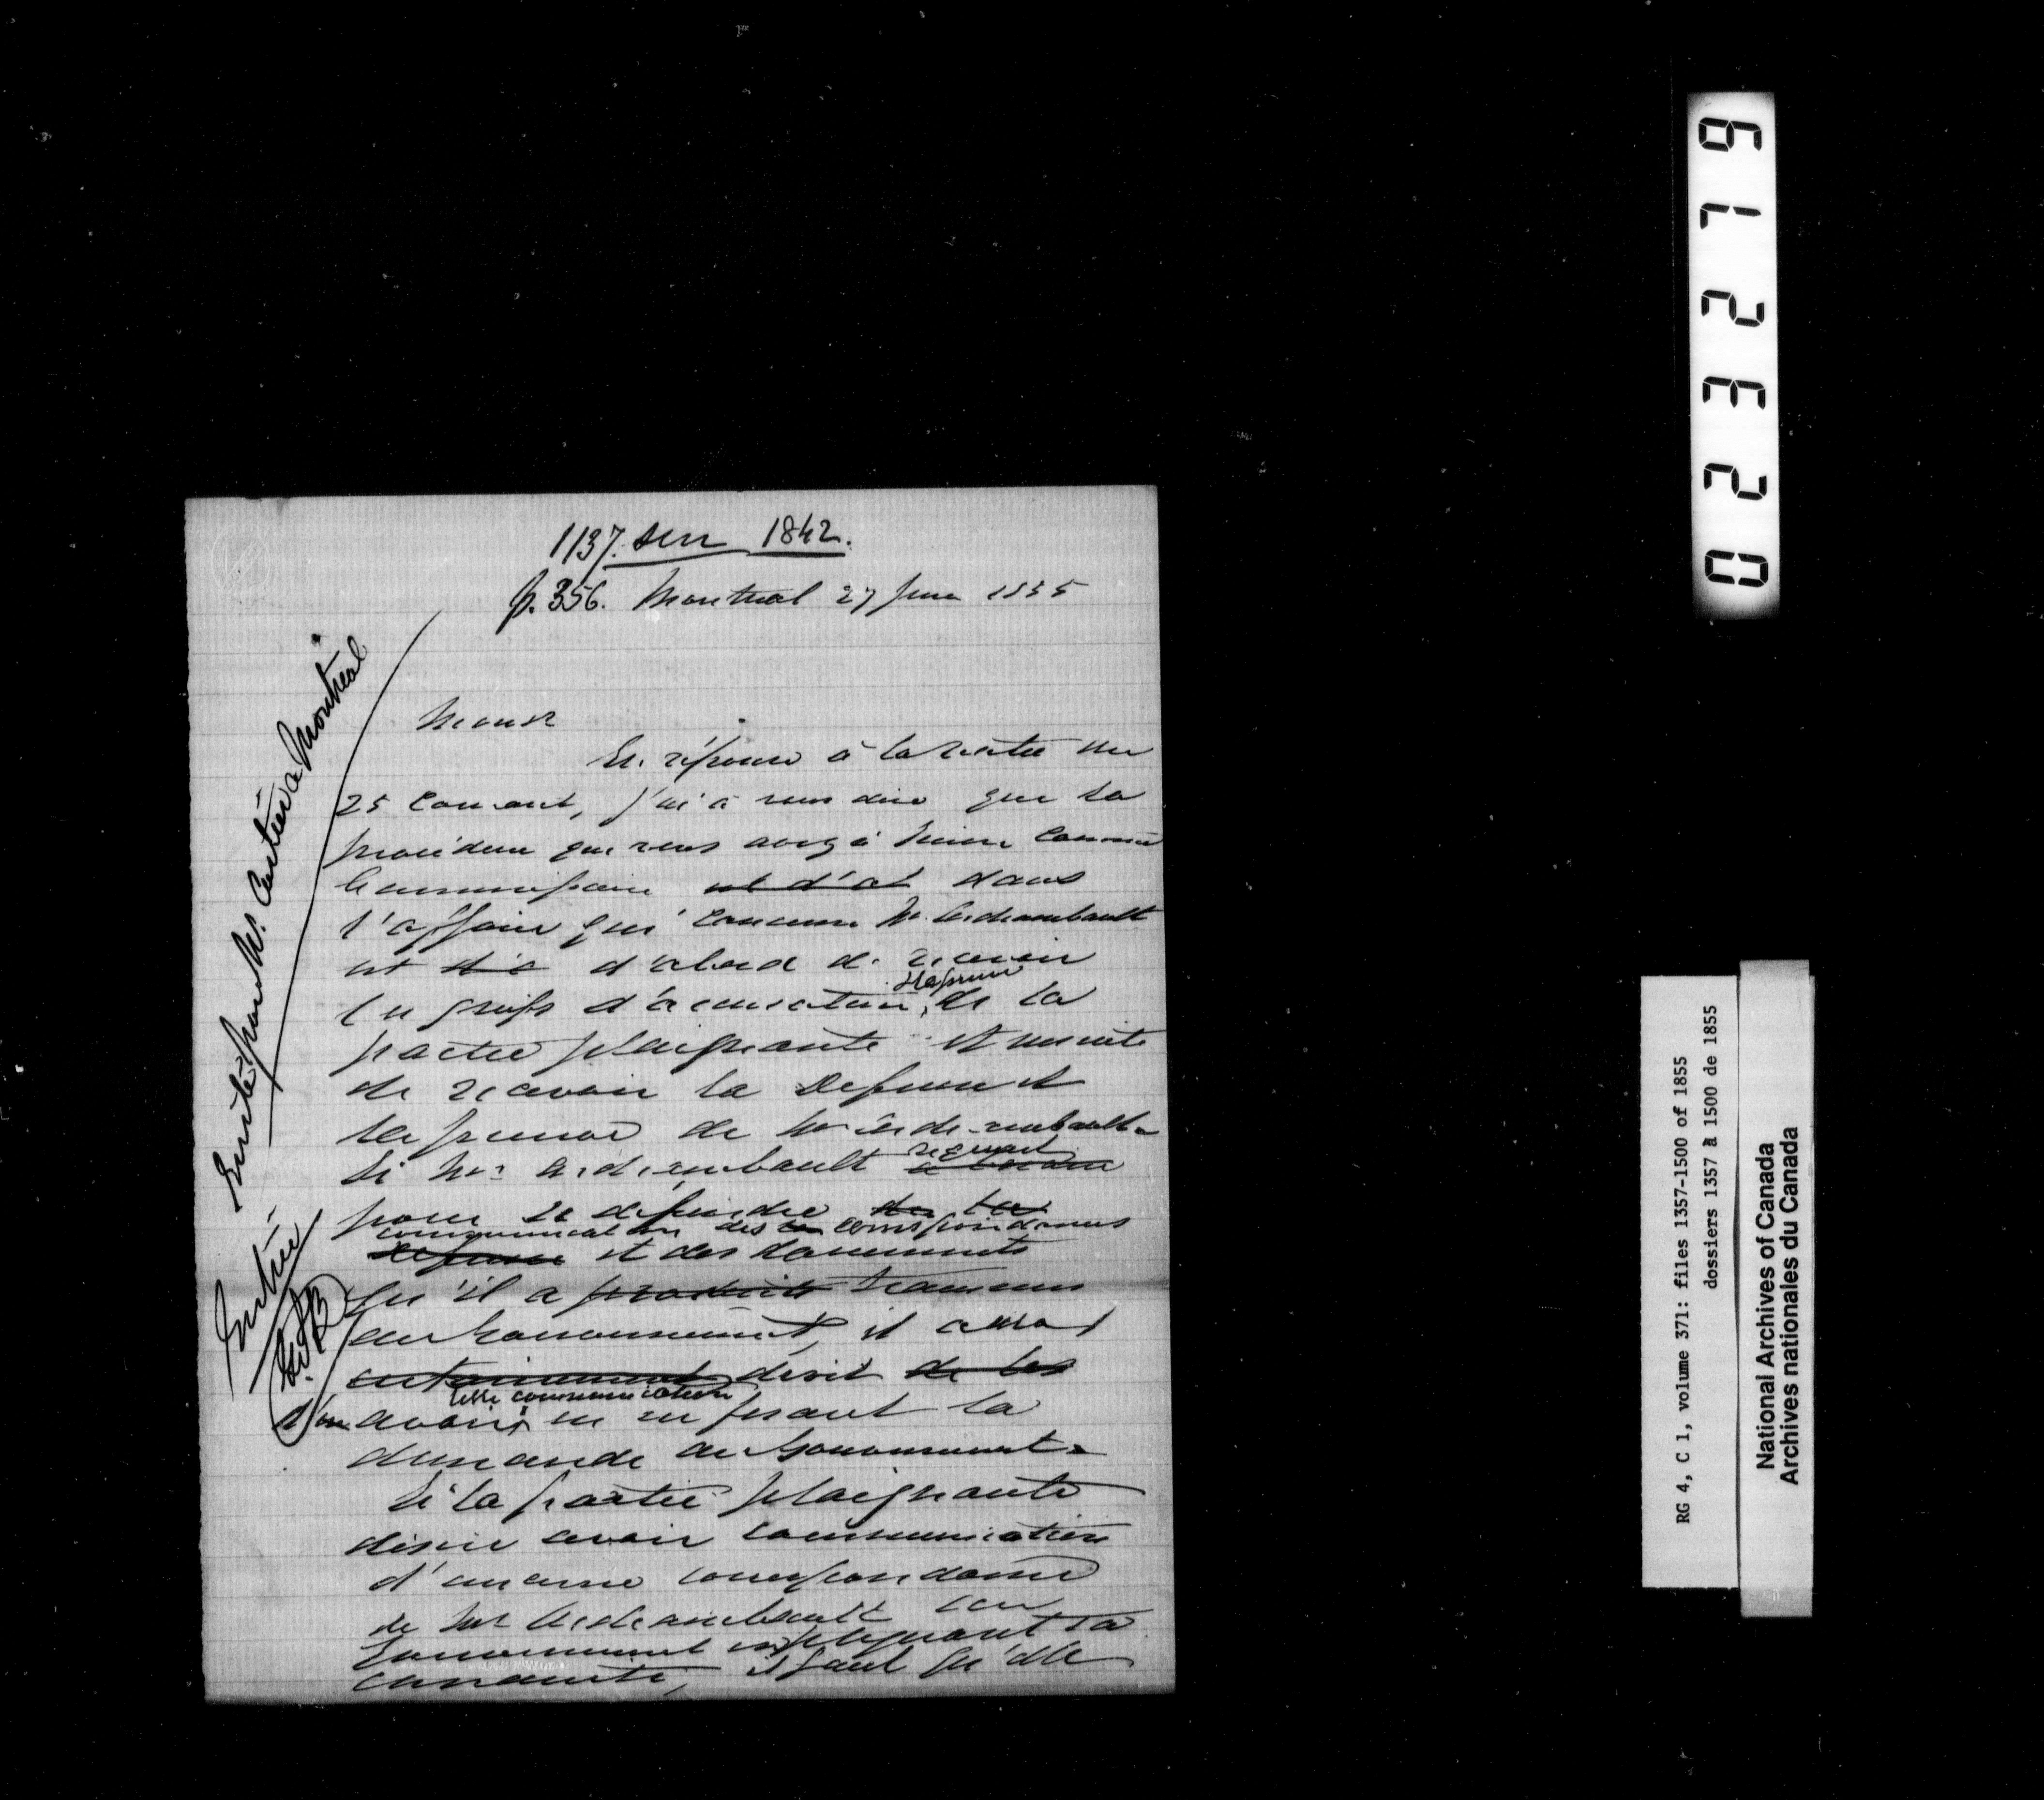 1137. sur 1842.
p. 356. Montreal 27 Juin 1855
Monsr
En réponse à la lettre du
25 courant, j'ai à vous dire que la
procédure que vous avez à suivre comme
Commissaire est d'ab dans
l'affaire qui concerne Mr Archambault
est d'a d'abord de recevoir
les griefs d'accusation, & la preuve de la
partie plaignante et ensuite
de recevoir la Défense et
la preuve de Mr Archambault.
Si Mr Archambault requiert
pour se défendre de la
communication des correspondances
défense et des documents
qu'il a produits transmis
au Gouvernement, il aura
certainement droit de les
d'en avoir telle communication en en fesant la
demande au Gouvernement.
Si la partie plaignante
désire avoir communication
d'aucune correspondance
de Mr Archambault au
Gouvernement expliquant sa
conduite, il faut qu'elle
Ecrite par Mr. Cartier à Montréal
Entrée
National Archives of Canada
Archives nationales du Canada
RG 4, C 1, volume 371: files 1357-1500 of 1855
dossiers 1357 à 1500 de 1855
023219